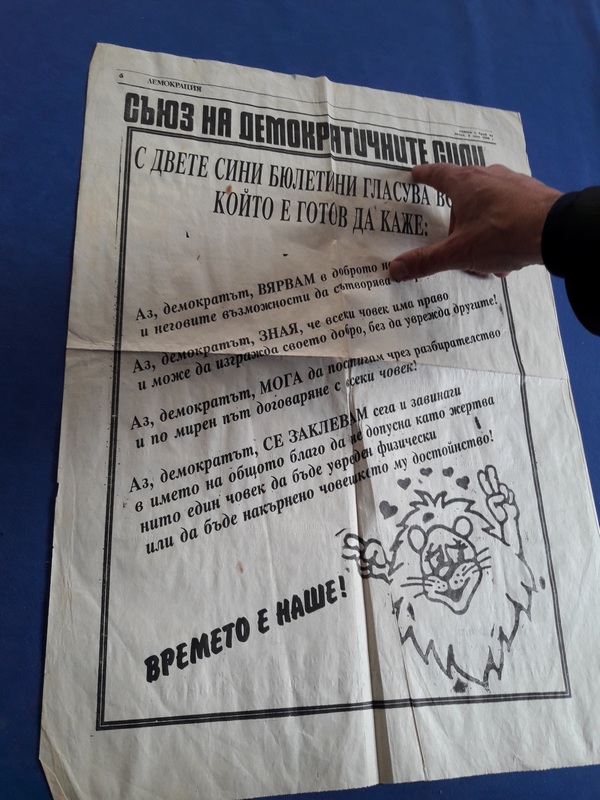 6 ДЕМОКРАЦИЯ
СЪЮЗ НА ДЕМОКРАТИЧНИТЕ СИЛИ
С ДВЕТЕ СИНИ БЮЛЕТИНИ ГЛАСУВА
КОЙТО Е ГОТОВ ДА КАЖЕ:
Аз, демократът, ВЯРВАМ в доброто
и неговите възможности да сътворява
Аз, демократът, ЗНАЯ, че всеки човек има право
и може да изгражда своето добро, без да уврежда другите!
Аз, демократът, МОГА да постигам чрез разбирателство
и по мирен път договаряне с всеки човек!
Аз, демократът, СЕ ЗАКЛЕВАМ сега и завинаги
в името на общото благо да не допусна като жертва
нито един човек да бъде увреден физически
или да бъде накърнено човешкото му достойнство!
ВРЕМЕТО Е НАШЕ!